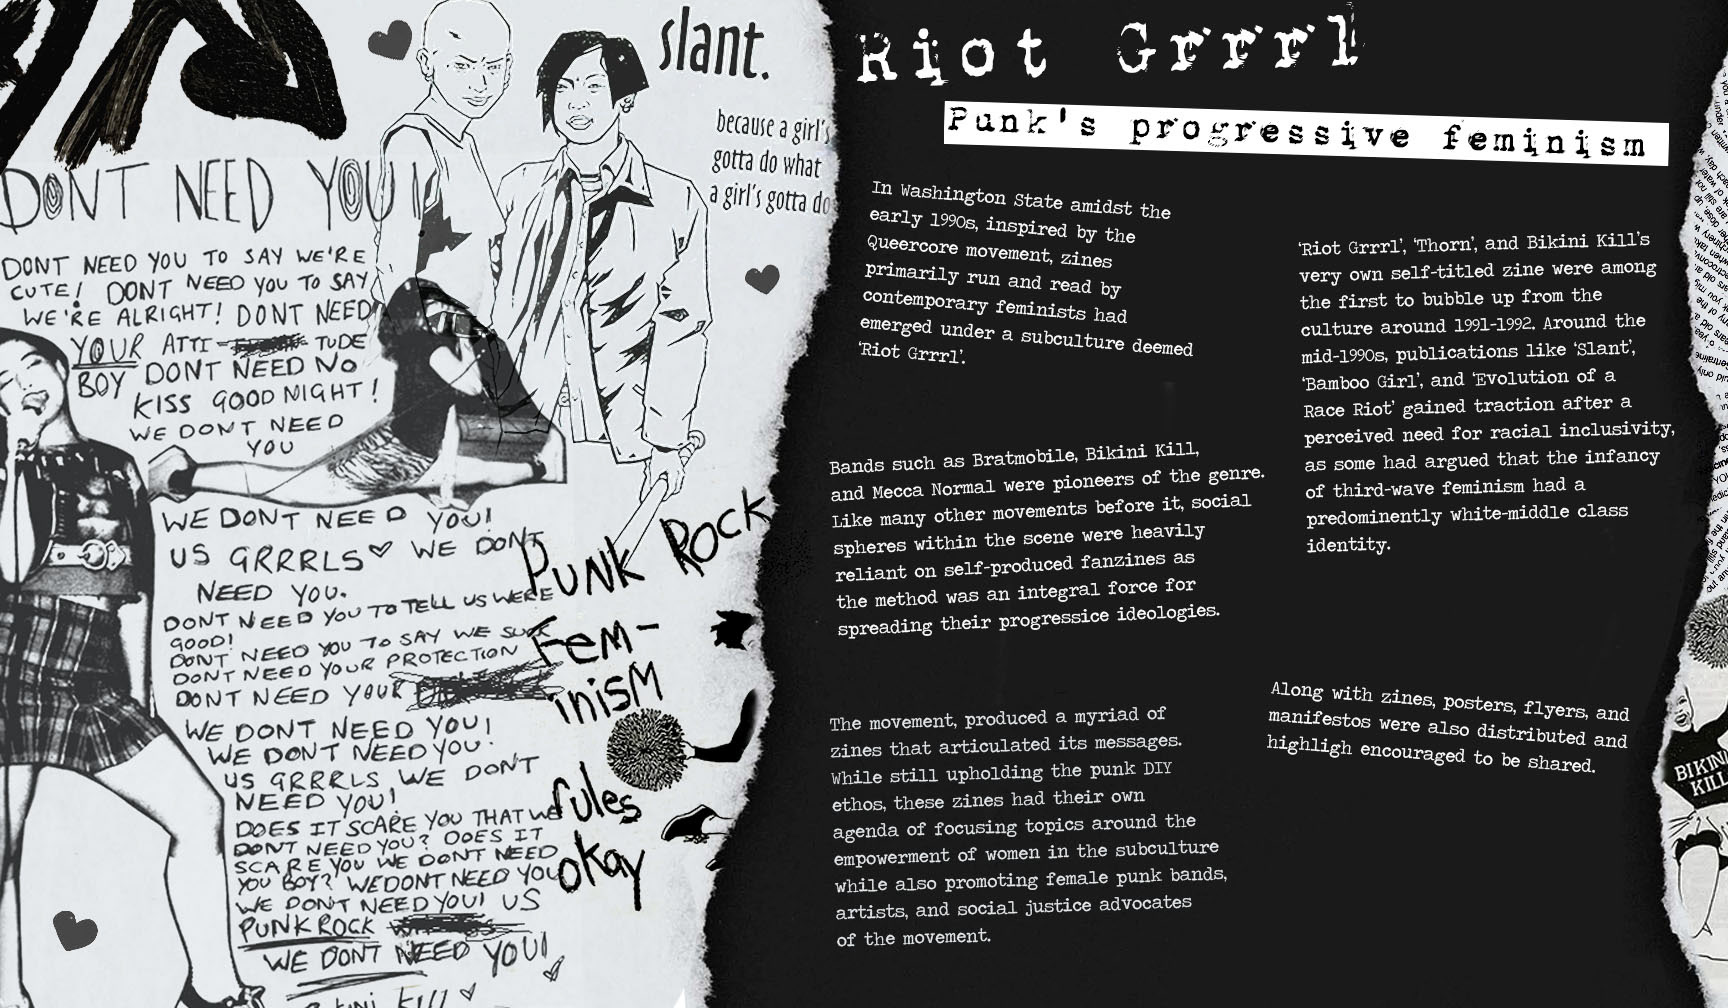 slant.
because a girl's
gotta do what
a girl's gotta do
DONT NEED YOU!
DONT NEED YOU TO SAY WE'RE
CUTE! DONT NEED YOU TO SAY
WE'RE ALRIGHT! DONT NEED
YOUR ATTI TUDE
BOY DONT NEED NO
KISS GOODNIGHT!
WE DONT NEED
YOU
WE DONT NEED YOU!
US GRRRLS WE DONT
NEED YOU.
DONT NEED YOU TO TELL US WERE
GOOD!
DONT NEED YOU TO SAY WE SUCK
DONT NEED YOUR PROTECTION
DONT NEED YOUR
WE DONT NEED YOU!
WE DONT NEED YOU.
US GRRRLS WE DONT
NEED YOU!
DOES IT SCARE YOU THAT WE
DONT NEED YOU? DOES IT
SCARE YOU WE DONT NEED
YOU BOY? WE DONT NEED YOU
WE DONT NEED YOU! US
PUNK ROCK
WE DONT NEED YOU!
Bikini Kill
PUNK ROCK
Fem-
inism
rules
okay
Riot Grrrl
Punk's progressive feminism
In Washington State amidst the
early 1990s, inspired by the
Queercore movement, zines
primarily run and read by
contemporary feminists had
emerged under a subculture deemed
‘Riot Grrrl’.
Bands such as Bratmobile, Bikini Kill,
and Mecca Normal were pioneers of the genre.
Like many other movements before it, social
spheres within the scene were heavily
reliant on self-produced fanzines as
the method was an integral force for
spreading their progressice ideologies.
The movement, produced a myriad of
zines that articulated its messages.
While still upholding the punk DIY
ethos, these zines had their own
agenda of focusing topics around the
empowerment of women in the subculture
while also promoting female punk bands,
artists, and social justice advocates
of the movement.
‘Riot Grrrl’, ‘Thorn’, and Bikini Kill’s
very own self-titled zine were among
the first to bubble up from the
culture around 1991-1992. Around the
mid-1990s, publications like ‘Slant’,
‘Bamboo Girl’, and ‘Evolution of a
Race Riot’ gained traction after a
perceived need for racial inclusivity,
as some had argued that the infancy
of third-wave feminism had a
predominently white-middle class
identity.
Along with zines, posters, flyers, and
manifestos were also distributed and
highligh encouraged to be shared.
BIKINI
KILL